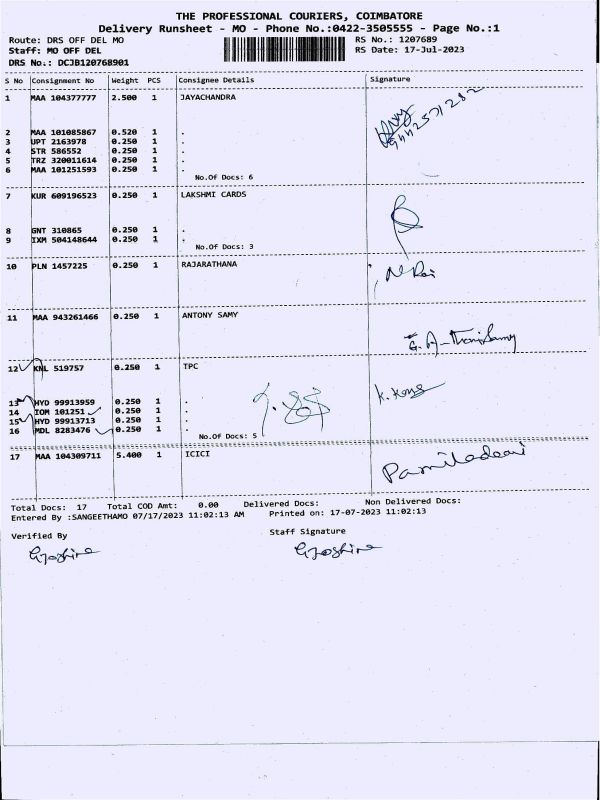 THE PROFESSIONAL COURIERS, COIMBATORE
Delivery Runsheet - MO - Phone No.:0422-3505555 - Page No.:1
Route: DRS OFF DEL MO RS No.: 1207689
Staff: MO OFF DEL RS Date: 17-Jul-2023
DRS No.: DCJB120768901
S No Consignment No Weight PCS Consignee Details Signature
1 MAA 104377777 2.500 1 JAYACHANDRA
2 MAA 101085867 0.520 1 .
3 UPT 2163978 0.250 1 .
4 STR 586552 0.250 1 .
5 TRZ 320011614 0.250 1 .
6 MAA 101251593 0.250 1 .
No.Of Docs: 6
7 KUR 609196523 0.250 1 LAKSHMI CARDS
8 GNT 310865 0.250 1 .
9 IXM 504148644 0.250 1 .
No.Of Docs: 3
10 PLN 1457225 0.250 1 RAJARATHANA
11 MAA 943261466 0.250 1 ANTONY SAMY
12 KNL 519757 0.250 1 TPC
13 HYD 99913959 0.250 1 .
14 IOM 101251 0.250 1 .
15 HYD 99913713 0.250 1 .
16 MDL 8283476 0.250 1 .
No.Of Docs: 5
17 MAA 104309711 5.400 1 ICICI
Total Docs: 17 Total COD Amt: 0.00 Delivered Docs: Non Delivered Docs:
Entered By :SANGEETHAMO 07/17/2023 11:02:13 AM Printed on: 17-07-2023 11:02:13
Verified By Staff Signature